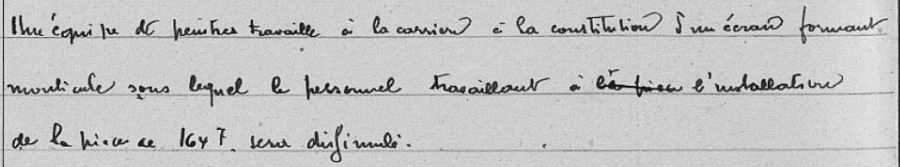 Une équipe de peintres travaille à la carrière à la constitution d'un écran formant
monticule sous lequel le personnel travaillant à l'installation
de la pièce de 164 7. sera dissimulé.